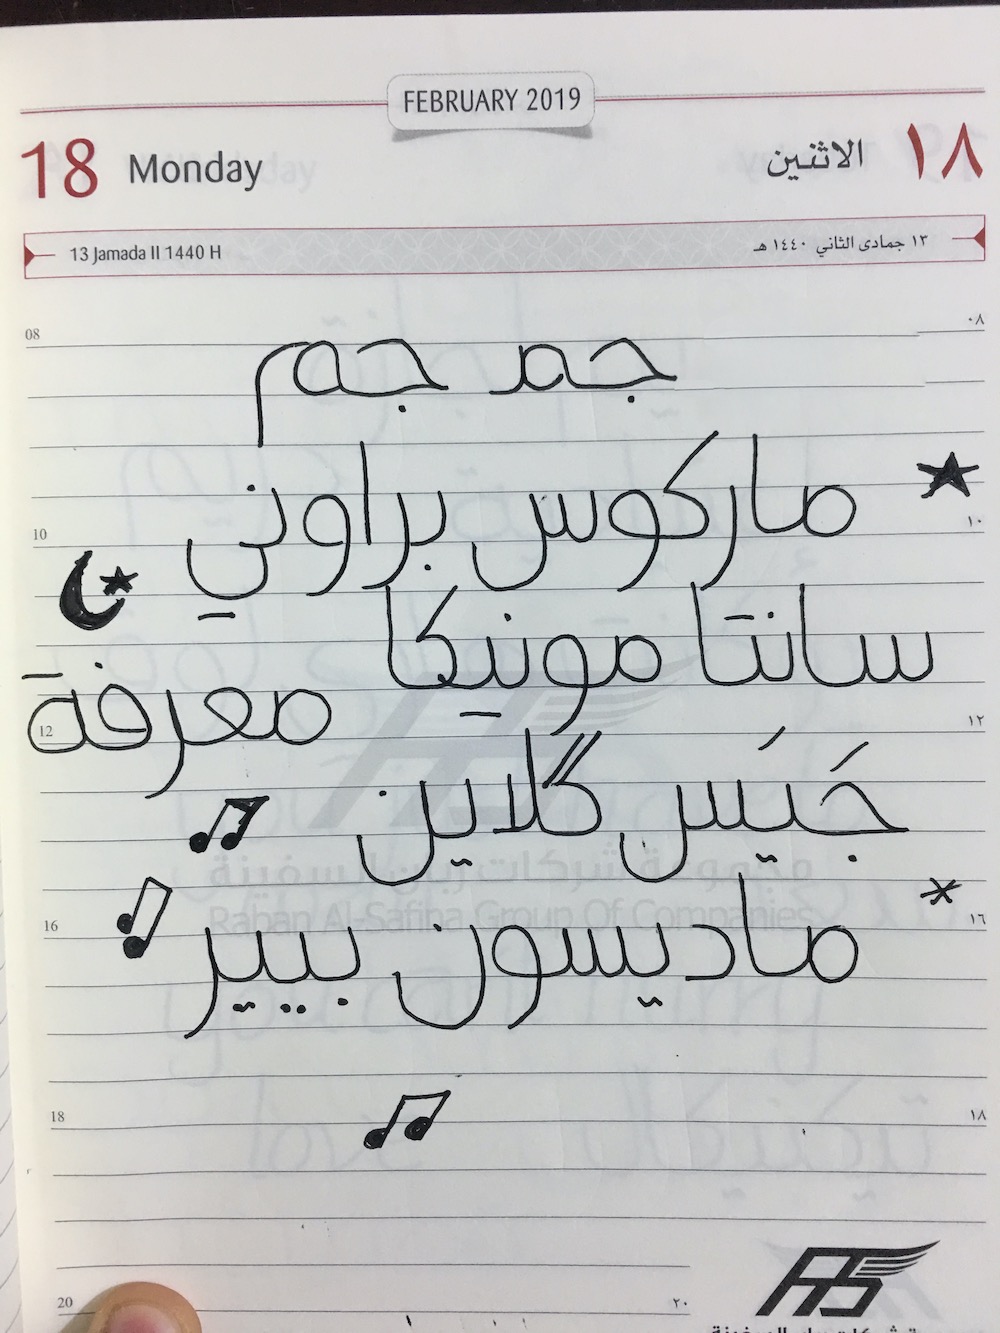 FEBRUARY 2019
18 Monday الاثنين ١٨
13 Jamada II 1440 H ١٣ جمادى الثاني ١٤٤٠ هـ
08 ٠٨
جمد جم
ماركوس براوني
10 ١٠
سانتا مونيكا
معرفة
12 ١٢
جَيَس گلاين
مجموعة شركات ربان السفينة
Raban Al-Safina Group Of Companies
16 ١٦
ماديسون بيير
18 ١٨
20 ٢٠